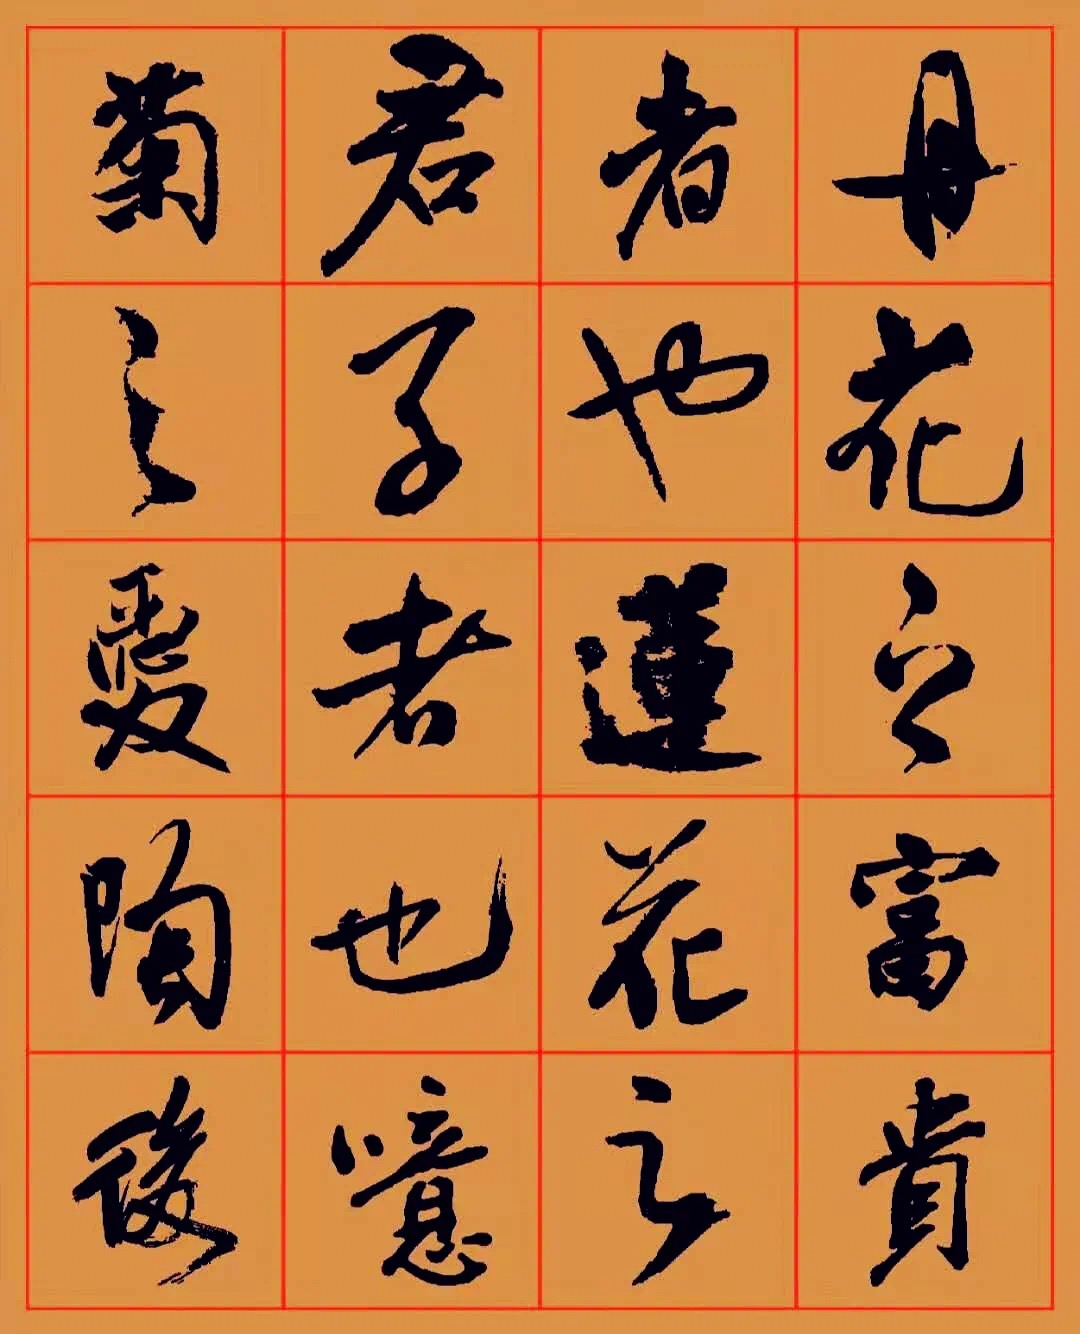 丹花之富貴
者也蓮花之
君子者也噫
菊之愛陶後